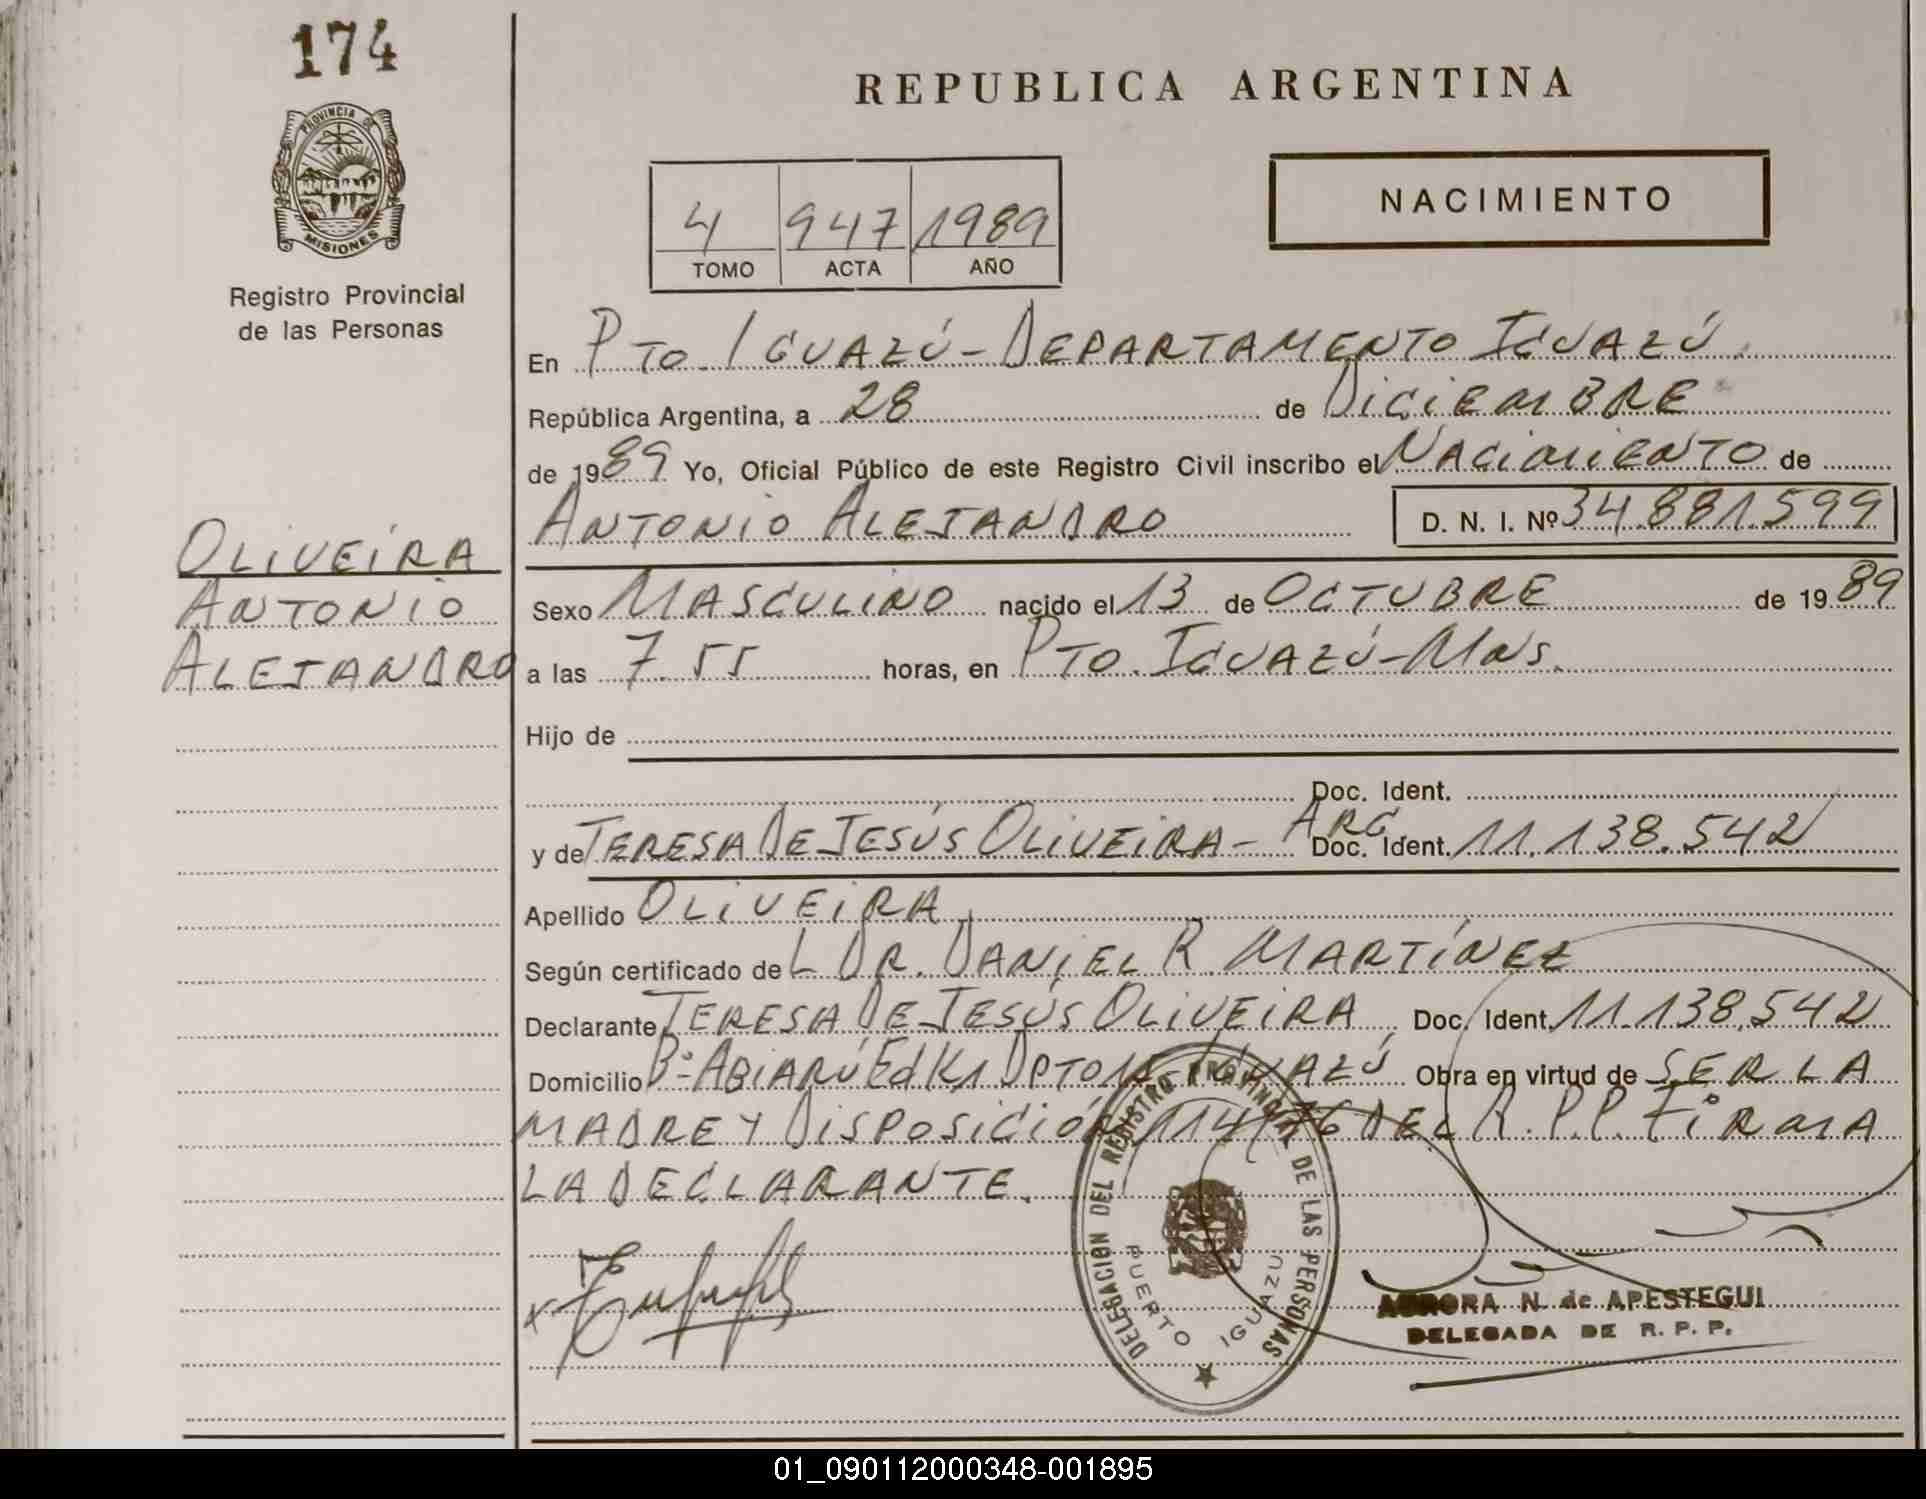 174
PROVINCIA DE
MISIONES
Registro Provincial
de las Personas
OLIVEIRA
ANTONIO
ALEJANDRO
REPUBLICA ARGENTINA
NACIMIENTO
4 947 1989
TOMO ACTA AÑO
En PTO. IGUAZÚ - DEPARTAMENTO IGUAZÚ.
República Argentina, a 28 de DICIEMBRE
de 1989 Yo, Oficial Público de este Registro Civil inscribo el NACIMIENTO de
ANTONIO ALEJANDRO D. N. I. Nº 34.881.599
Sexo MASCULINO nacido el 13 de OCTUBRE de 1989
a las 7.55 horas, en PTO. IGUAZÚ - MNS.
Hijo de
Doc. Ident.
y de TERESA DE JESÚS OLIVEIRA - ARG Doc. Ident. 11.138.542
Apellido OLIVEIRA
Según certificado de L DR. DANIEL R. MARTÍNEZ
Declarante TERESA DE JESÚS OLIVEIRA Doc. Ident. 11.138.542
Domicilio Bº ABIARÚ Ed K1 DPTO IGUAZÚ Obra en virtud de SER LA
MADRE Y DISPOSICIÓN 114/76 DEL R.P.P. FIRMA
LA DECLARANTE.
DELEGACION DEL REGISTRO PROVINC. DE LAS PERSONAS
PUERTO IGUAZU
AURORA N. de APESTEGUI
DELEGADA DE R. P. P.
01_090112000348-001895